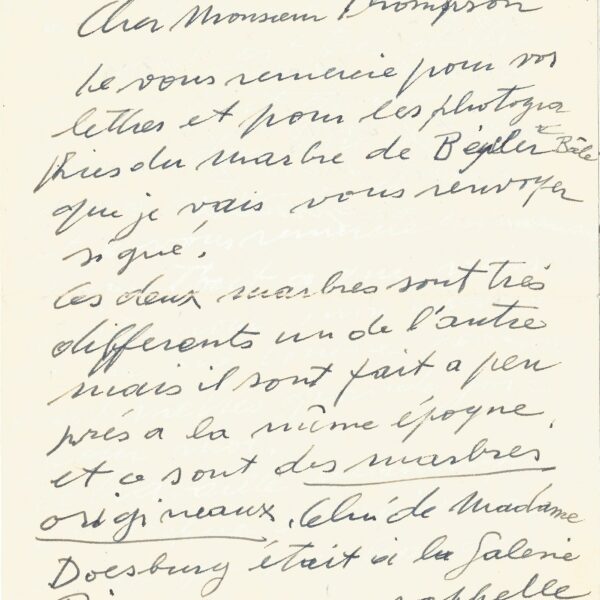 Cher Monsieur Thompson
Je vous remercie pour vos
lettres et pour les photogra
phies du marbre de Béyler x Bâle
que je vais vous renvoyer
signé.
Ces deux marbres sont très
differents un de l'autre
mais il sont fait a peu
près a la même époque,
et ce sont des marbres
origineaux. Celui de Madame
Doesburg était à la Galerie
rappelle